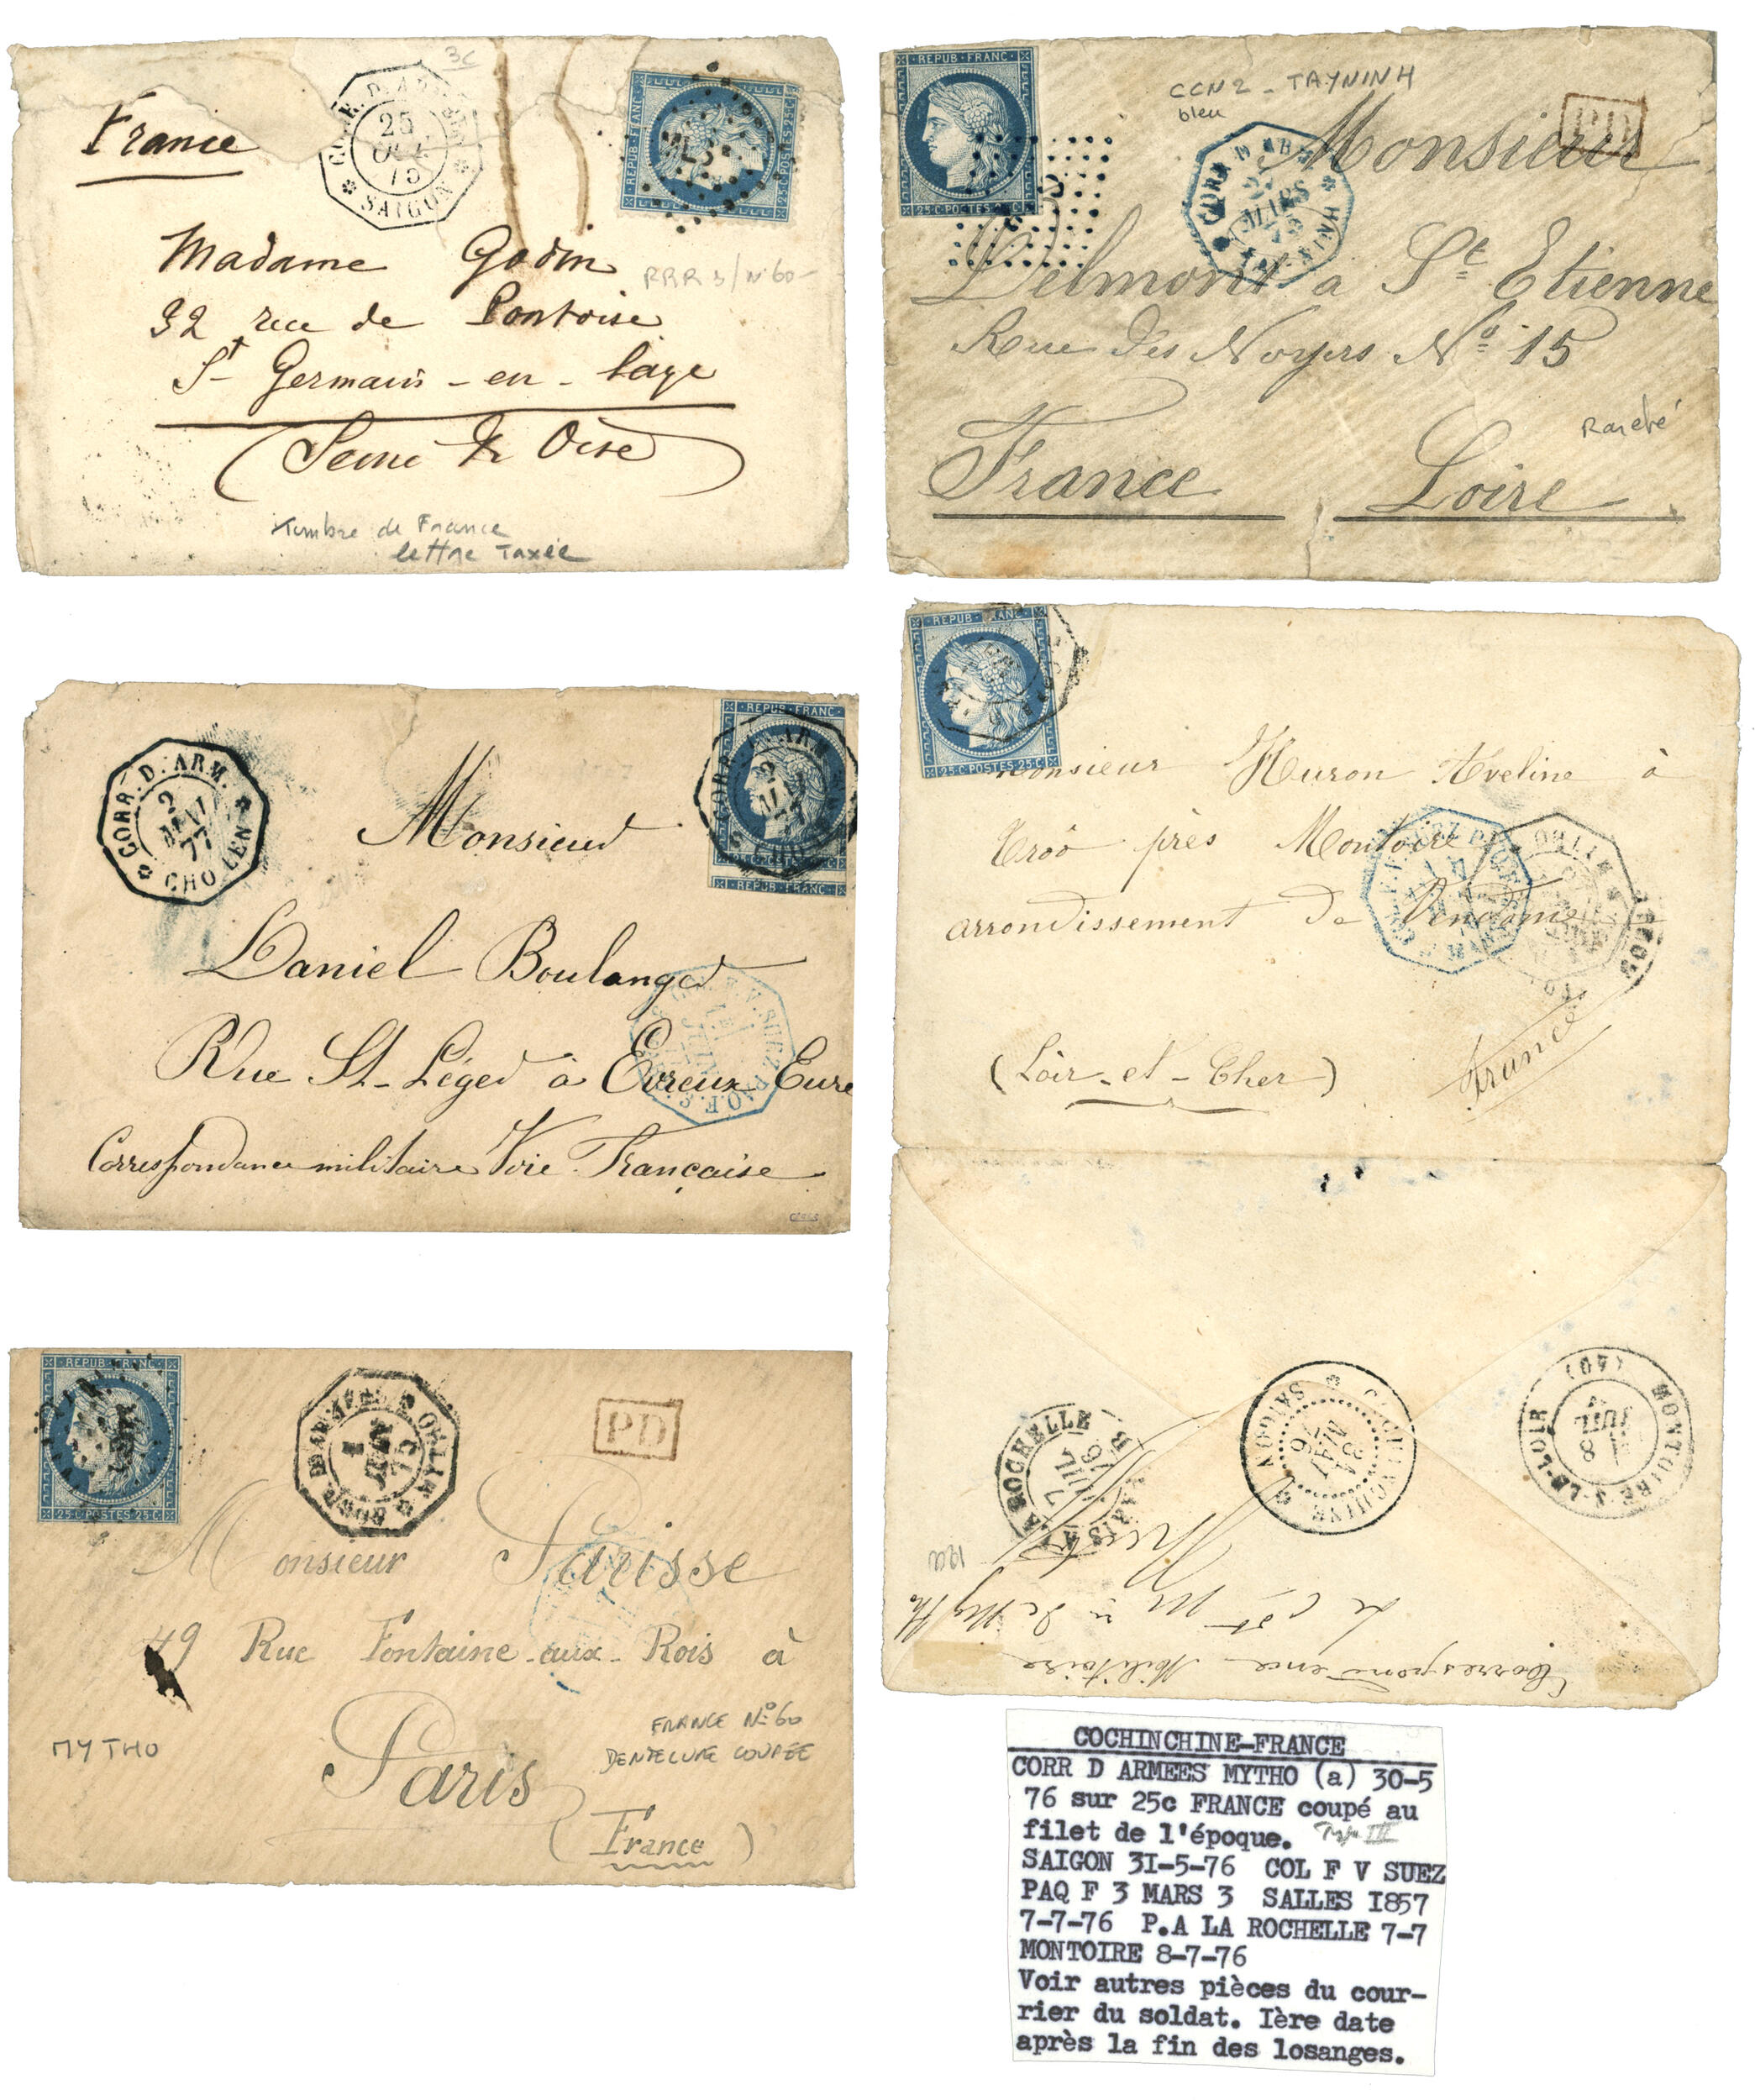 3c
France
CORR. D. AR
25
OCT
75
SAIGON
REPUB·FRANC
25·C·POSTES·25·C
Madame Godin
RRR s/N°60
32 rue de Pontoise
St Germain - en - Laye
(Seine & Oise)
Timbre de France
lettre Taxée
REPUB·FRANC
25·C·POSTES·25·C
CCN2 - TAYNINH
bleu
PD
CORR D AR
MARS
Monsieur
Delmont a St Etienne
Rue des Noyers No 15
Rareté
France Loire
CORR. D. ARM.
2
MAI
77
CHOLEN
REPUB·FRANC
CORR D. ARM.
2
MAI
77
REPUB·FRANC
Monsieur
Daniel Boulanger
Rue St-Léger à Evreux Eure
F. V. SUEZ PAQ. F.
JUIN
Correspondance militaire Voie Française
REPUB·FRANC
25·C·POSTES·25·C
Monsieur Huron Aveline à
Trôo près Montoire
arrondissement de Vendôme
(Loir-et-Cher) France
LA ROCHELLE
7
JUIL
76
COCHINCHINE
SAIGON
31
MAI
76
MONTOIRE-S-LE-LOIR (40)
8
JUIL
12a
Correspondance Militaire
REPUB·FRANC
25·C·POSTES·25·C
CORR. D. ARMEES
1
JUIN
75
MYTHO
PD
Monsieur Parisse
49 Rue Fontaine-aux-Rois à
Paris
(France)
MY THO
FRANCE No 60
DENTELURE COUPÉE
COCHINCHINE-FRANCE
CORR D ARMEES MYTHO (a) 30-5
76 sur 25c FRANCE coupé au
filet de l'époque. Type III
SAIGON 3I-5-76 COL F V SUEZ
PAQ F 3 MARS 3 SALLES I857
7-7-76 P.A LA ROCHELLE 7-7
MONTOIRE 8-7-76
Voir autres pièces du cour-
rier du soldat. Ière date
après la fin des losanges.